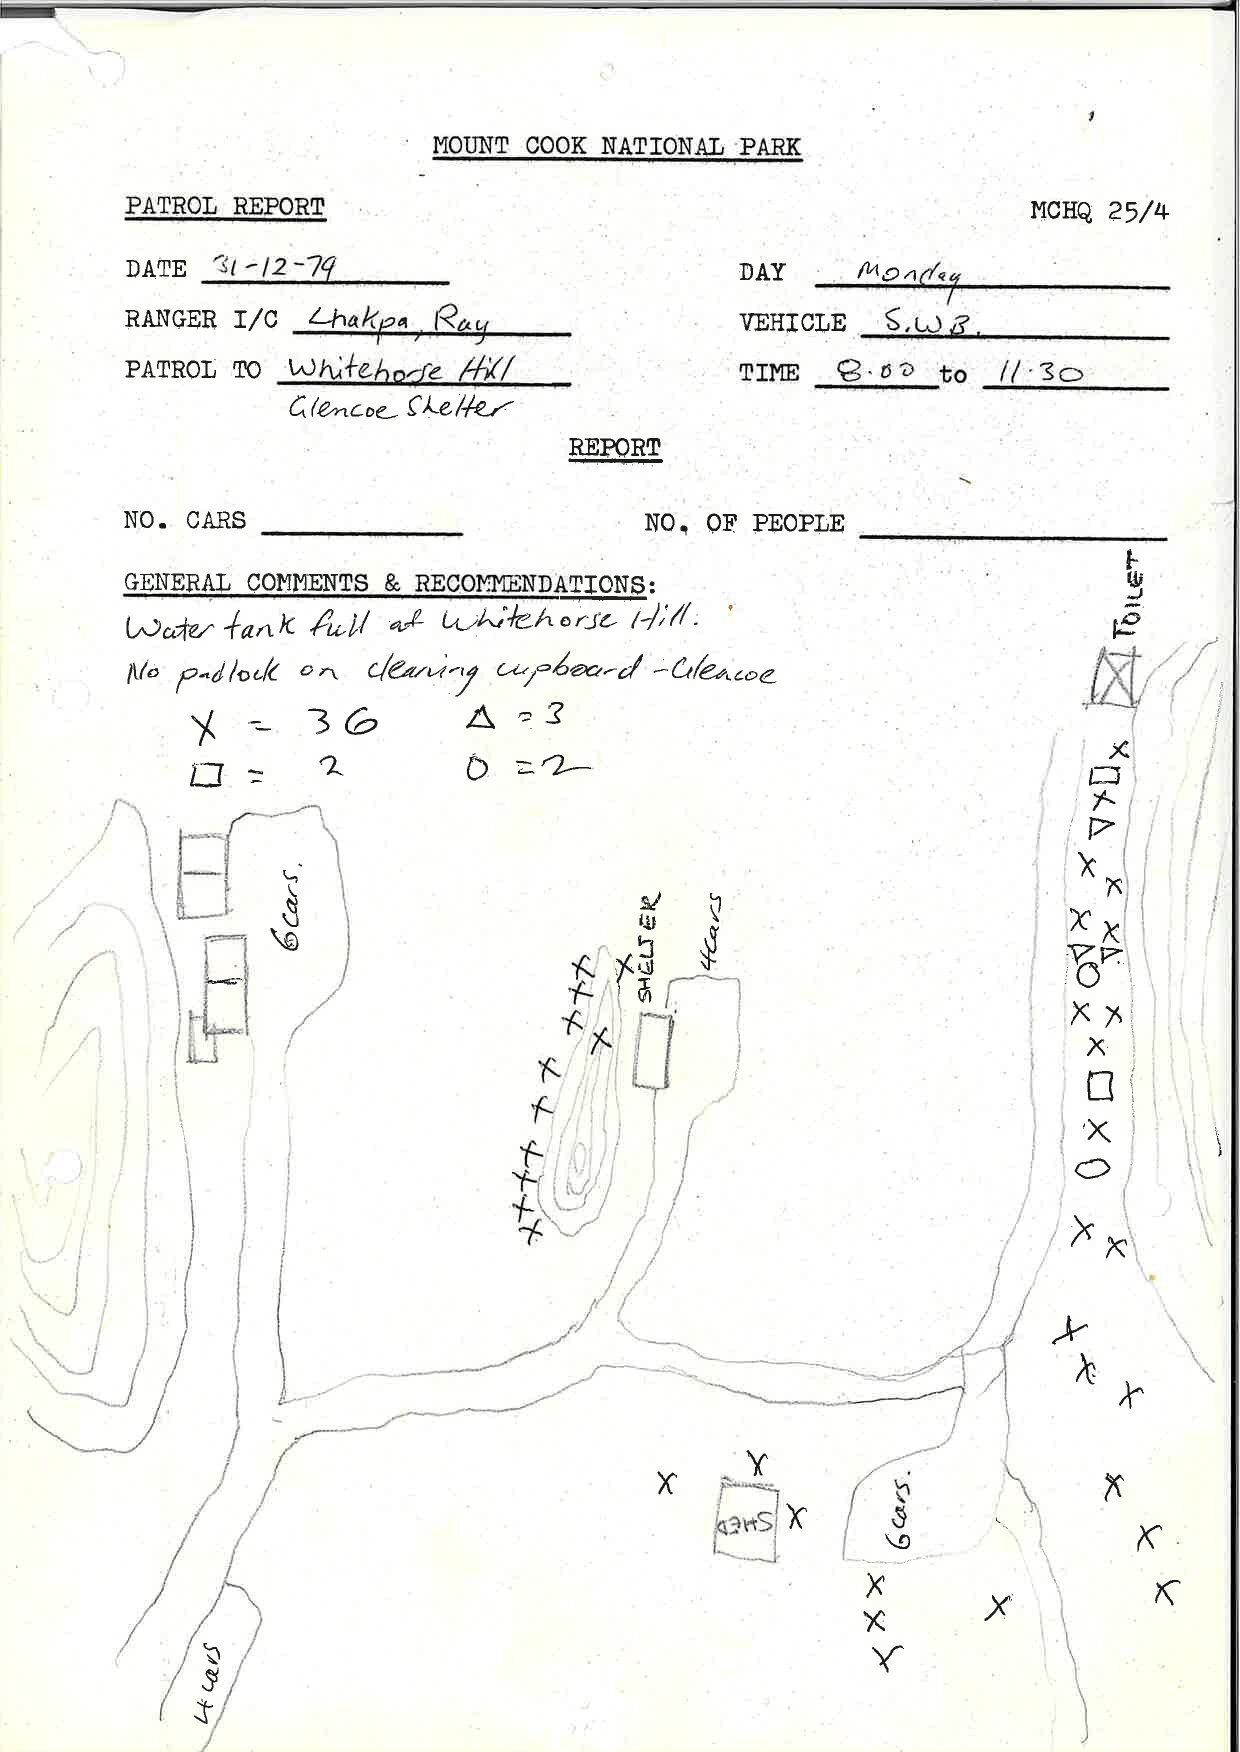 MOUNT COOK NATIONAL PARK
PATROL REPORT
MCHQ 25/4
DATE 31-12-79
DAY Monday
RANGER I/C Lhakpa, Ray
VEHICLE S.W.B.
PATROL TO Whitehorse Hill
TIME 8.00 to 11.30
Glencoe Shelter
REPORT
NO. CARS
NO. OF PEOPLE
GENERAL COMMENTS & RECOMMENDATIONS:
Water tank full at Whitehorse Hill.
No padlock on cleaning cupboard - Glencoe
X = 36 Δ = 3
□ = 2 O = 2
TOILET
6 cars.
SHELTER
4 cars
SHED
6 cars.
4 cars